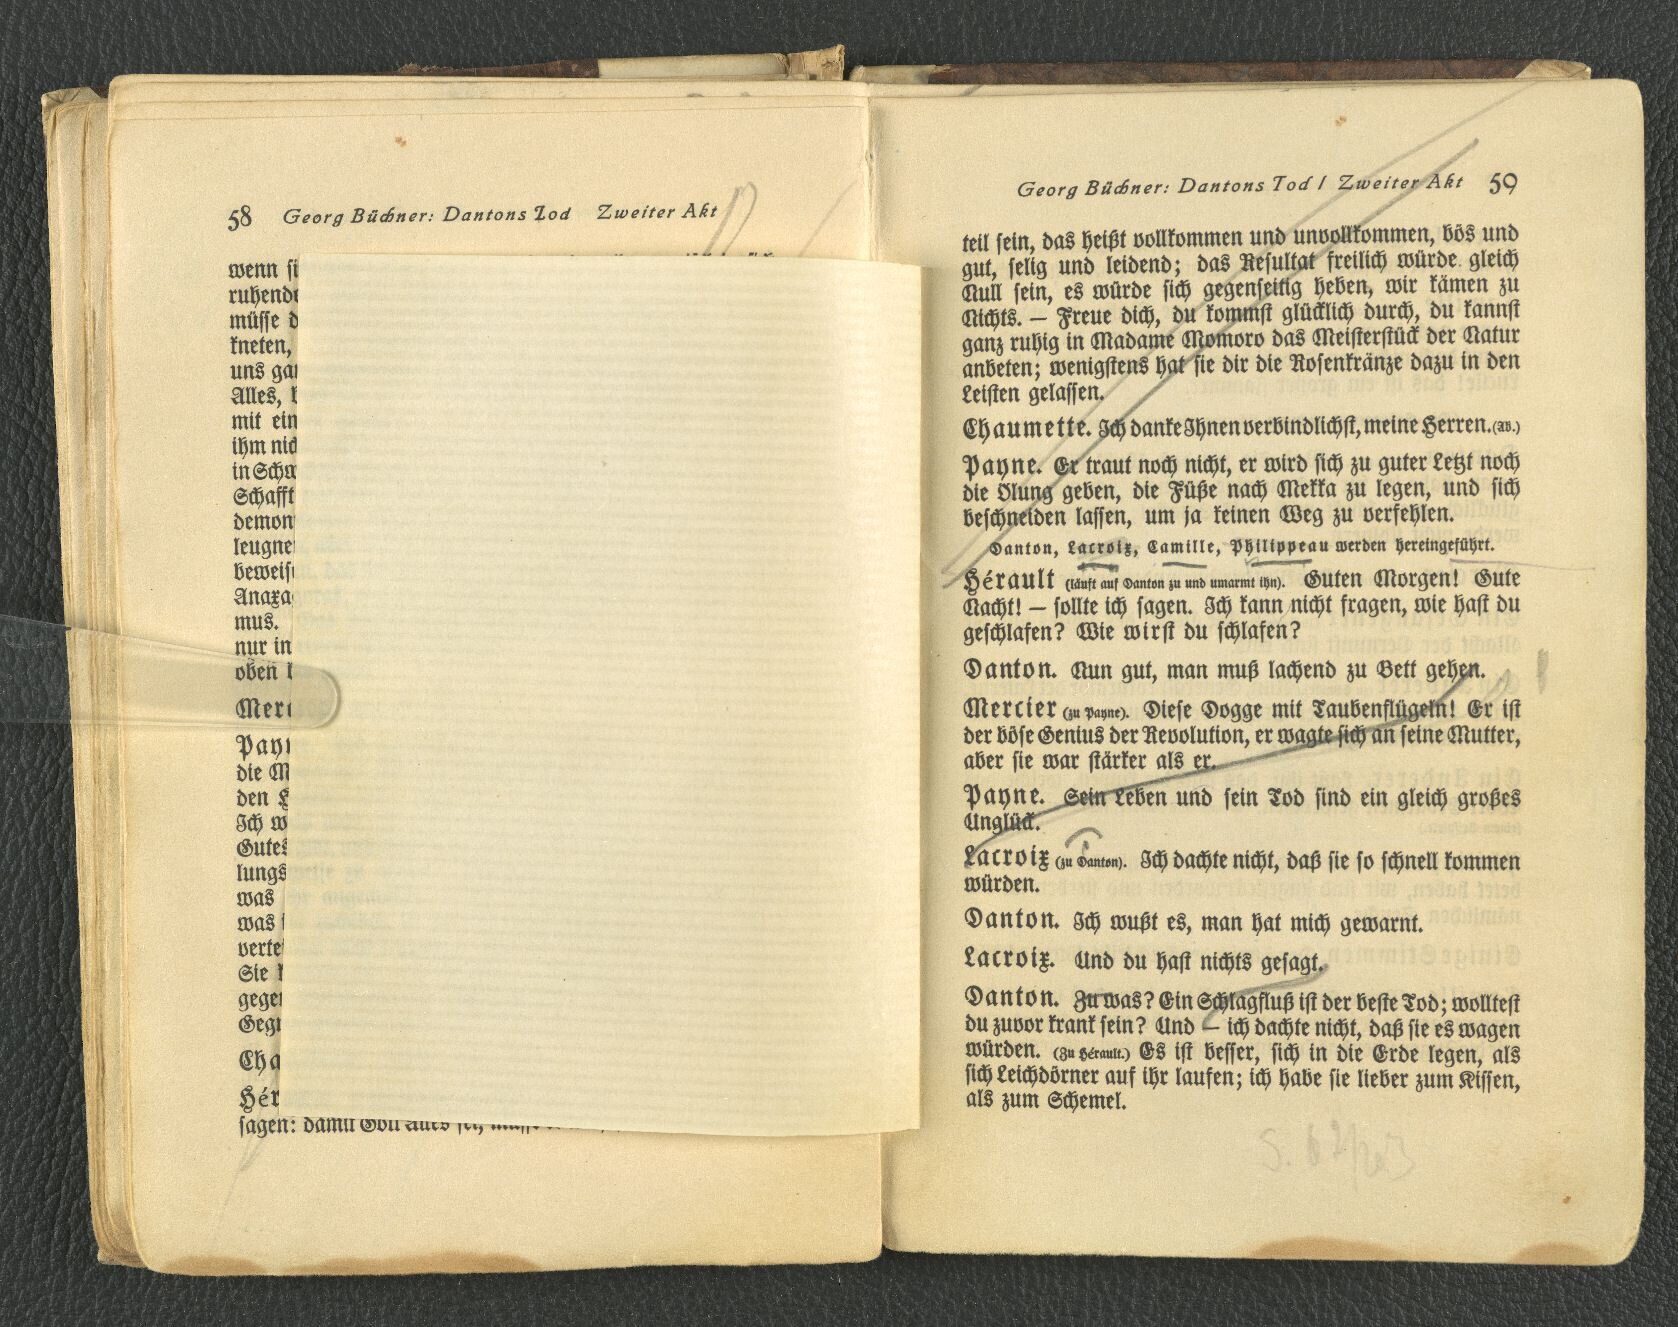 58 Georg Büchner: Dantons Tod Zweiter Akt
wenn
ruhend
müsse
kneten,
uns
Alles,
mit ein
ihm
in
Schafft
leugne
mus.
nur in
oben
die
den
Ich
Gutes
lungs
was
was
Sie
sagen: damit Gott Alles sei,
Georg Büchner: Dantons Tod / Zweiter Akt 59
teil sein, das heißt vollkommen und unvollkommen, bös und
gut, selig und leidend; das Resultat freilich würde gleich
Null sein, es würde sich gegenseitig heben, wir kämen zu
Nichts. — Freue dich, du kommst glücklich durch, du kannst
ganz ruhig in Madame Momoro das Meisterstück der Natur
anbeten; wenigstens hat sie dir die Rosenkränze dazu in den
Leisten gelassen.
Chaumette. Ich danke Ihnen verbindlichst, meine Herren. (Ab.)
Payne. Er traut noch nicht, er wird sich zu guter Letzt noch
die Ölung geben, die Füße nach Mekka zu legen, und sich
beschneiden lassen, um ja keinen Weg zu verfehlen.
Danton, Lacroix, Camille, Philippeau werden hereingeführt.
Hérault (läuft auf Danton zu und umarmt ihn). Guten Morgen! Gute
Nacht! — sollte ich sagen. Ich kann nicht fragen, wie hast du
geschlafen? Wie wirst du schlafen?
Danton. Nun gut, man muß lachend zu Bett gehen.
Mercier (zu Payne). Diese Dogge mit Taubenflügeln! Er ist
der böse Genius der Revolution, er wagte sich an seine Mutter,
aber sie war stärker als er.
Payne. Sein Leben und sein Tod sind ein gleich großes
Unglück.
Lacroix (zu Danton). Ich dachte nicht, daß sie so schnell kommen
würden.
Danton. Ich wußt es, man hat mich gewarnt.
Lacroix. Und du hast nichts gesagt.
Danton. Zu was? Ein Schlagfluß ist der beste Tod; wolltest
du zuvor krank sein? Und — ich dachte nicht, daß sie es wagen
würden. (Zu Hérault.) Es ist besser, sich in die Erde legen, als
sich Leichdörner auf ihr laufen; ich habe sie lieber zum Kissen,
als zum Schemel.